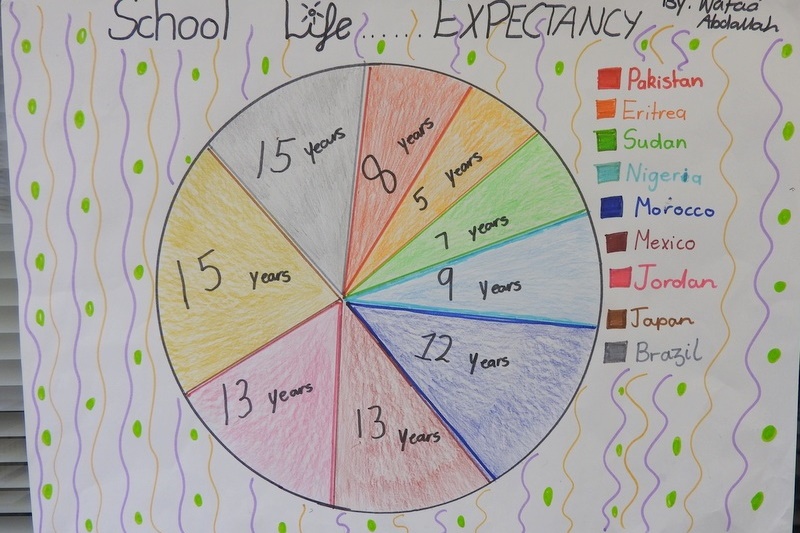 School Life...... EXPECTANCY
By: Wafaa
Abdallah
15 years
8 years
5 years
7 years
9 years
12 years
13 years
13 years
15 years
Pakistan
Eritrea
Sudan
Nigeria
Morocco
Mexico
Jordan
Japan
Brazil